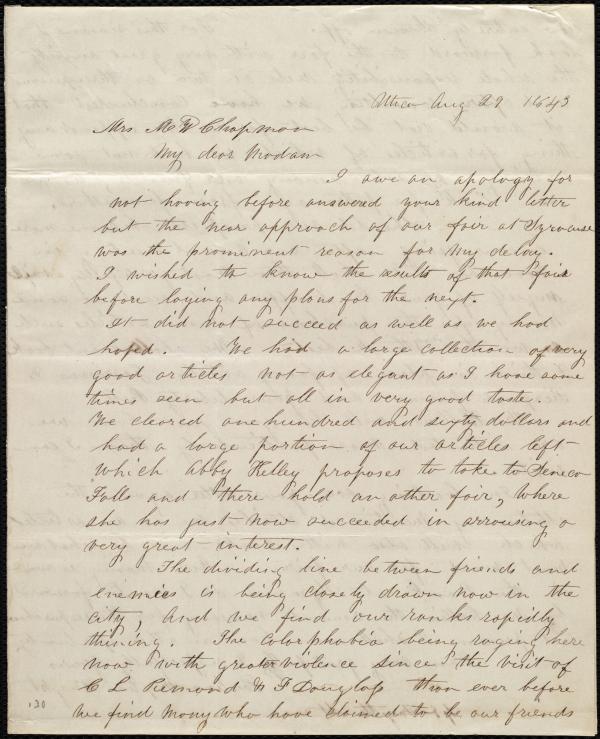 Utica Aug 29 1843
Mrs. M W Chapman
My dear Madam
I owe an apology for
not having before answered your kind letter
but the near approach of our fair at Syracuse
was the prominent reason for my delay.
I wished to know the results of that fair
before laying any plans for the next.
It did not succeed as well as we had
hoped. We had a large collection of very
good articles not as elegant as I have some
times seen but all in very good taste.
We cleared one hundred and sixty dollars and
had a large portion of our articles left
which Abby Kelley proposes to take to Seneca
Falls and there hold an other fair, where
she has just now succeeded in arrousing a
very great interest.
The dividing line between friends and
enemies is being closely drawn now in the
city, and we find our ranks rapidly
thining. The Colorphobia being raging here
now with greater violence since the visit of
C L Remond & F Douglass than ever before
we find many who have claimed to be our friends
130